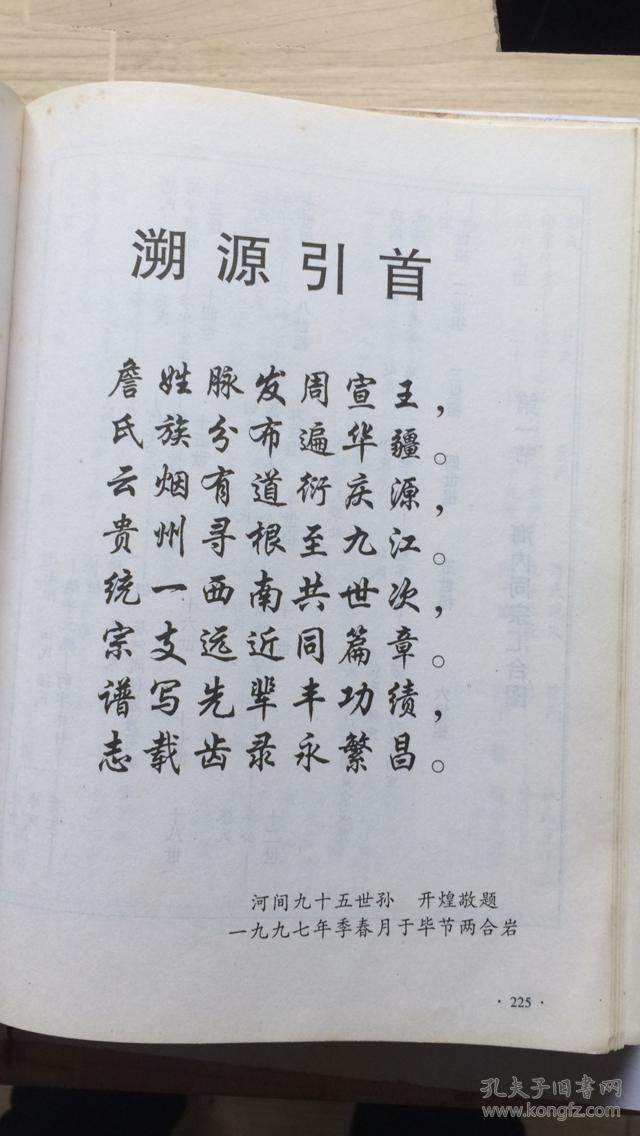 溯源引首
詹姓脉发周宣王，
氏族分布遍华疆。
云烟有道衍庆源，
贵州寻根至九江。
统一西南共世次，
宗支远近同篇章。
谱写先辈丰功绩，
志载齿录永繁昌。
河间九十五世孙 开煌敬题
一九九七年季春月于毕节两合岩
·225·
孔夫子旧书网
www.kongfz.com